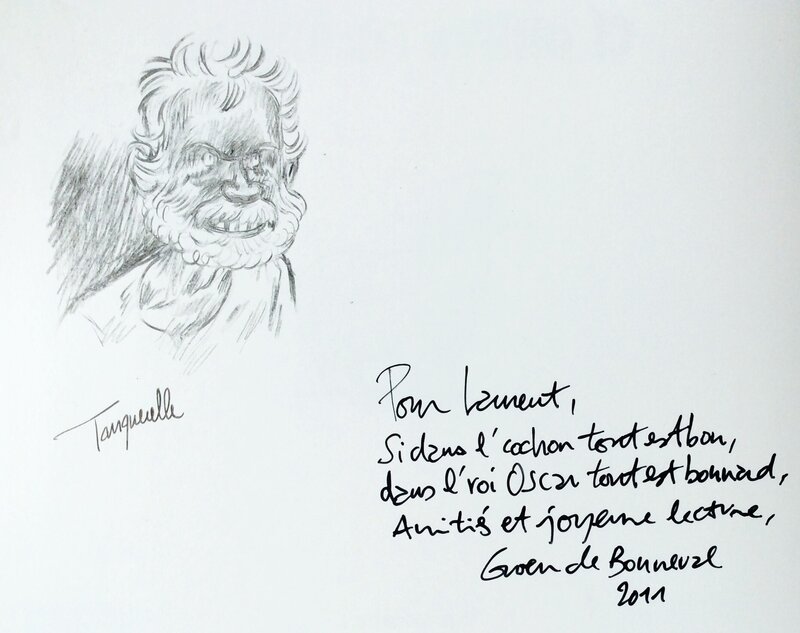 Tanquerelle
Pour Laurent,
Si dans l'cochon tout est bon,
dans l'roi Oscar tout est bonnard,
Amitiés et joyeuse lecture,
Gwen de Bonneval
2011